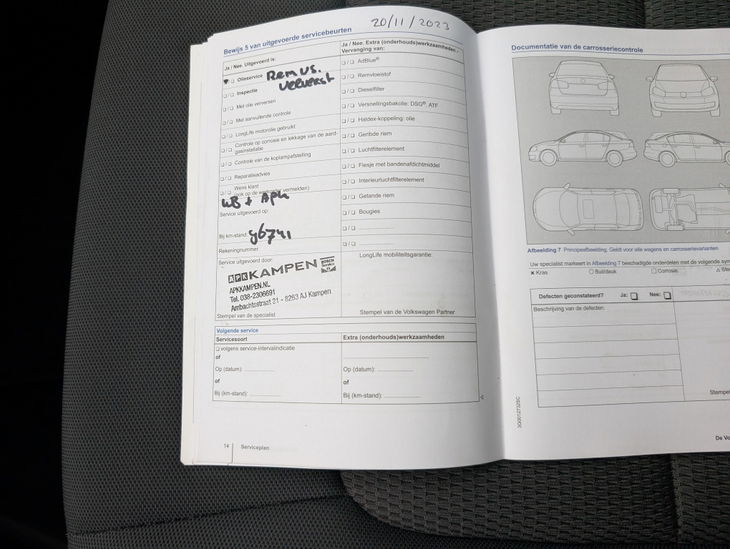 20/11/2023
Bewijs 5 van uitgevoerde servicebeurten
Ja / Nee. Uitgevoerd is:
Olieservice
Rem vs.
ververst
Inspectie
Met olie verversen
Met aanvullende controle
LongLife motorolie gebruikt
Controle op corrosie en lekkage van de aard-
gasinstallatie
Controle van de koplampafstelling
Reparatieadvies
Wens klant
WB + APK
Service uitgevoerd op:
Bij km-stand:
96741
Rekeningnummer:
Service uitgevoerd door:
APK KAMPEN
BOSCH
Service
APKKAMPEN.NL
Tel. 038-2306691
Ambachtsstraat 21 - 8263 AJ Kampen
Stempel van de specialist
Ja / Nee. Extra (onderhouds)werkzaamheden -
Vervanging van:
AdBlue®
Remvloeistof
Dieselfilter
Versnellingsbakolie: DSG®, ATF
Haldex-koppeling: olie
Geribde riem
Luchtfilterelement
Flesje met bandenafdichtmiddel
Interieurluchtfilterelement
Getande riem
Bougies
LongLife mobiliteitsgarantie:
Stempel van de Volkswagen Partner
Volgende service
Servicesoort
Extra (onderhouds)werkzaamheden
volgens service-intervalindicatie
of
Op (datum):
Op (datum):
of
of
Bij (km-stand):
Bij (km-stand):
14
Serviceplan
Documentatie van de carrosseriecontrole
Afbeelding 7 Principeafbeelding. Geldt voor alle wagens en carrosserievarianten
Uw specialist markeert in Afbeelding 7 beschadigde onderdelen met de volgende
Kras
Buil/deuk
Corrosie
Defecten geconstateerd?
Ja:
Nee:
Beschrijving van de defecten: